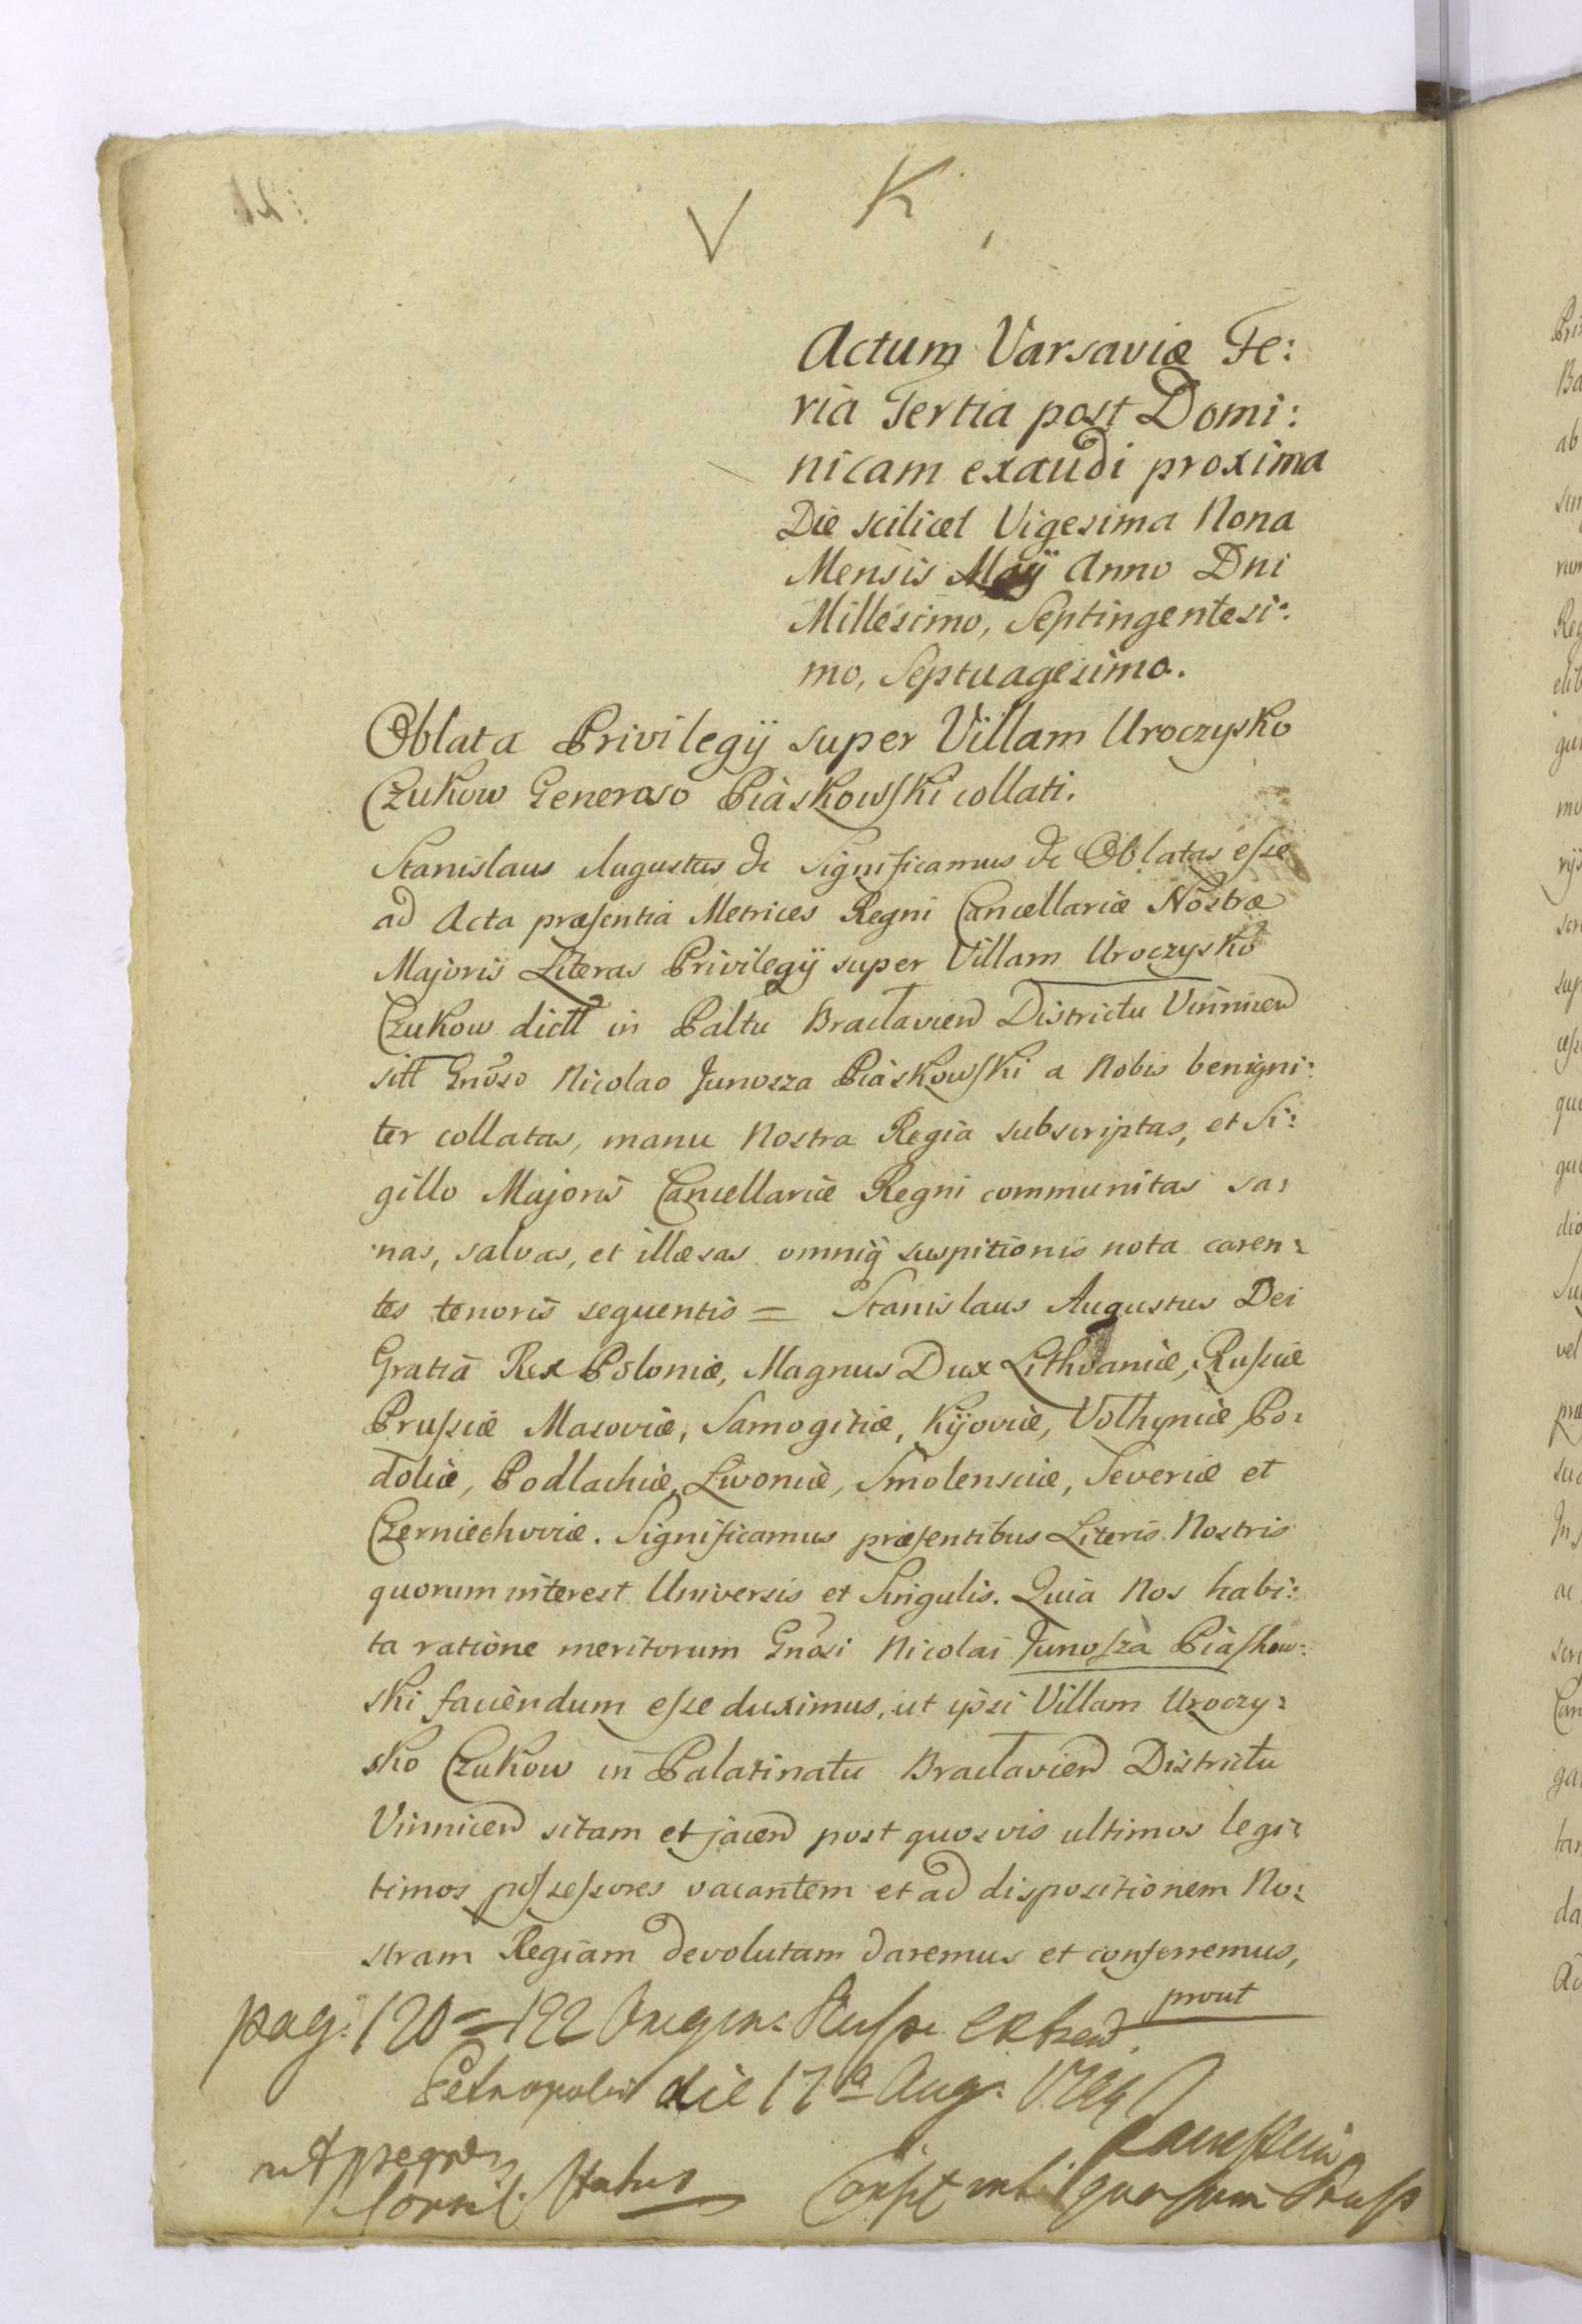 V K
Actum Varsaviæ Fe:
ria Tertia post Domi:
nicam exaudi proxima
Die scilicet Vigesima Nona
Mensis Maÿ Anno Dni
Millesimo, Septingentesi:
mo, Septuagesimo.
Oblata Privilegÿ super Villam Uroczysko
Czukow Generoso Piaskowski collati.
Stanislaus Augustus &c Significamus &c Oblatas esse
ad Acta præsentia Metrices Regni Cancellariæ Nostræ
Majoris Literas Privilegÿ super Villam Uroczysko
Czukow dictt in Paltu Braclavien Districtu Vinnicen
sitt Gnoso Nicolao Junosza Piaskowski a Nobis benigni:
ter collatas, manu Nostra Regia subscriptas, et Si:
gillo Majoris Cancellariæ Regni communitas sa:
nas, salvas, et illæsas omniq suspitionis nota caren:
tes tenoris sequentis = Stanislaus Augustus Dei
Gratia Rex Poloniæ, Magnus Dux Lithvaniæ, Russiæ
Prussiæ Masoviæ, Samogitiæ, Kÿoviæ, Volhyniæ Po:
doliæ, Podlachiæ, Livoniæ, Smolensciæ, Severiæ et
Czerniechoviæ. Significamus præsentibus Literis Nostris
quorum interest Universis et Singulis. Quia Nos habi:
ta ratione meritorum Gnosi Nicolai Junosza Piaskow:
ski favendum esse duximus, ut ipsi Villam Uroczy:
sko Czukow in Palatinatu Braclavien Districtu
Vinnicen sitam et jacen post quosvis ultimos legi:
timos possessores vacantem et ad dispositionem No:
stram Regiam devolutam daremus et conferremus,
prout
pag: 120 = 122
die 17a Aug:
Status